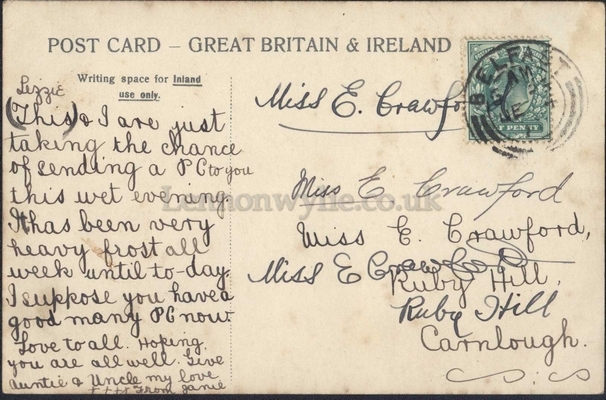 POST CARD – GREAT BRITAIN & IRELAND
Writing space for Inland
use only.
Lizzie
(This) & I are just
taking the chance
of sending a PC to you
this wet evening.
It has been very
heavy frost all
week until to-day.
I suppose you have a
good many PC now
Love to all. Hoping
you are all well. Give
Auntie & Uncle my love
from Janie
Miss E. Crawford
BELFAST
Miss E Crawford
Lennonwylie.co.uk
Miss E. Crawford,
Miss E Crawford
Ruby Hill,
Ruby Hill
Carnlough.